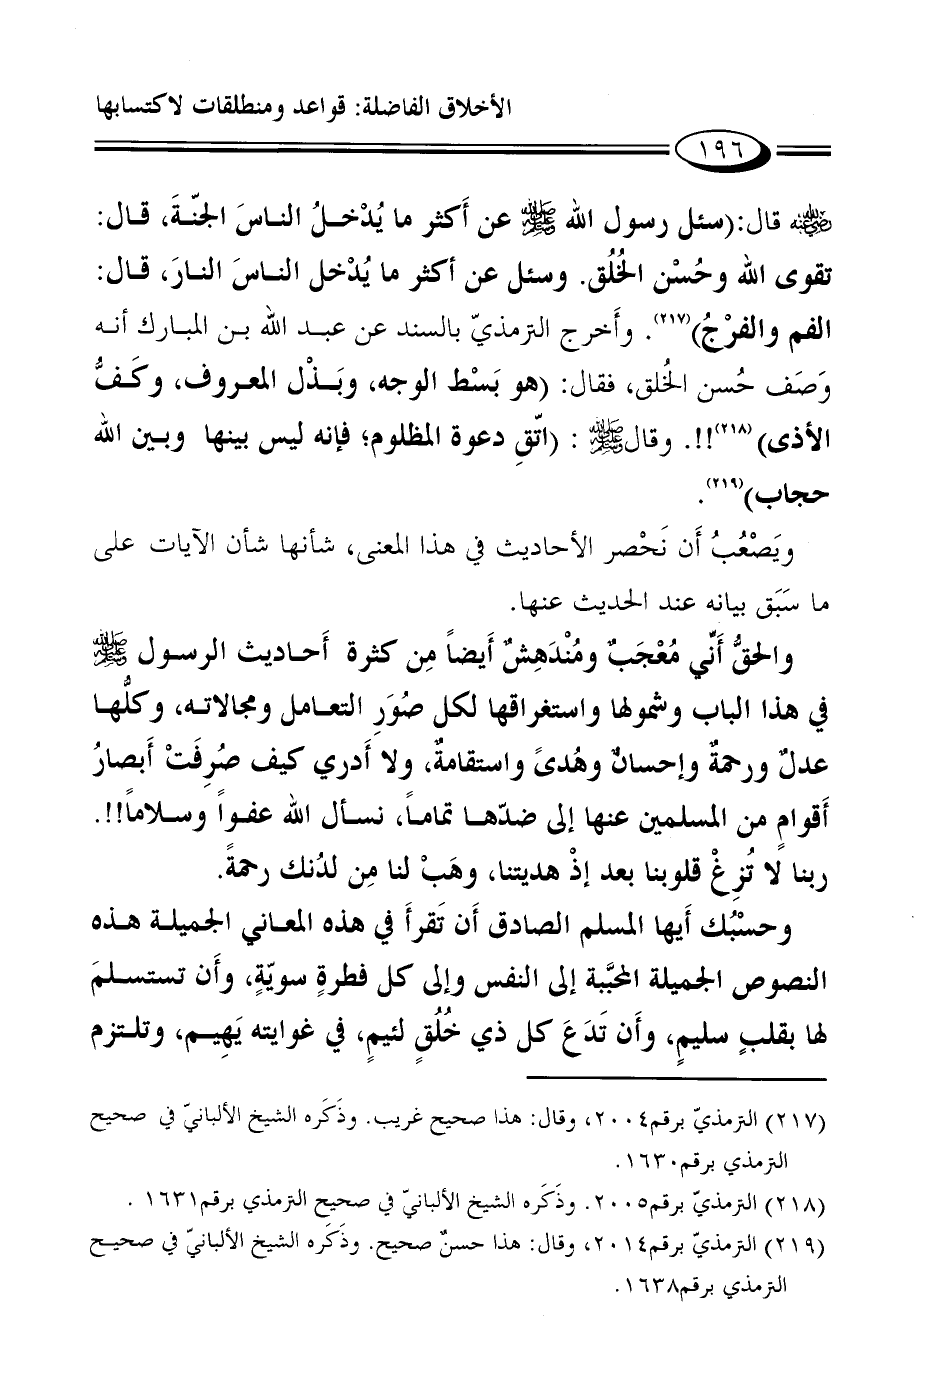 الأخلاق الفاضلة: قواعد ومنطلقات لاكتسابها
١٩٦
رضي الله عنه قال: (سئل رسول الله ﷺ عن أَكثر ما يُدْخلُ الناسَ الجنّةَ، قال:
تقوى الله وحُسْن الخُلُق. وسئل عن أكثر ما يُدْخل الناسَ النارَ، قال:
الفم والفرْجُ)(٢١٧). وأَخرج الترمذيّ بالسند عن عبد الله بن المبارك أنه
وَصَف حُسن الخُلق، فقال: (هو بَسْط الوجه، وبَذْل المعروف، وكَفُّ
الأذى)(٢١٨)!!. وقال ﷺ : (اتّقِ دعوة المظلوم؛ فإنه ليس بينها وبين الله
حجاب)(٢١٩).
ويَصْعُبُ أَن نَحْصر الأحاديث في هذا المعنى، شأنها شأن الآيات على
ما سَبَق بيانه عند الحديث عنها.
والحقُّ أَنّي مُعْجَبٌ ومُنْدَهِشٌ أَيضاً مِن كثرة أَحاديث الرسول ﷺ
في هذا الباب وشمولها واستغراقها لكل صُوَرِ التعامل ومجالاته، وكلُّها
عدلٌ ورحمةٌ وإحسانٌ وهُدىً واستقامةٌ، ولا أَدري كيف صُرِفَتْ أَبصارُ
أَقوامٍ من المسلمين عنها إلى ضدّها تماماً، نسأل الله عفواً وسلاماً!!.
ربنا لا تُزِغْ قلوبنا بعد إذْ هديتنا، وهَبْ لنا مِن لدُنك رحمةً.
وحسْبُك أَيها المسلم الصادق أَن تَقرأَ في هذه المعاني الجميلة هذه
النصوص الجميلة المحبَّبة إلى النفس وإلى كل فطرةٍ سويّةٍ، وأَن تستسلمَ
لها بقلبٍ سليمٍ، وأَن تَدَعَ كل ذي خُلُقٍ لئيمٍ، في غوايته يَهِيم، وتلتزم
(٢١٧) الترمذيّ برقم٢٠٠٤، وقال: هذا صحيح غريب. وذَكَره الشيخ الألبانيّ في صحيح
الترمذي برقم١٦٣٠.
(٢١٨) الترمذيّ برقم٢٠٠٥. وذَكَره الشيخ الألبانيّ في صحيح الترمذي برقم١٦٣١ .
(٢١٩) الترمذيّ برقم٢٠١٤، وقال: هذا حسنٌ صحيح. وذكَره الشيخ الألبانيّ في صحيح
الترمذي برقم١٦٣٨.